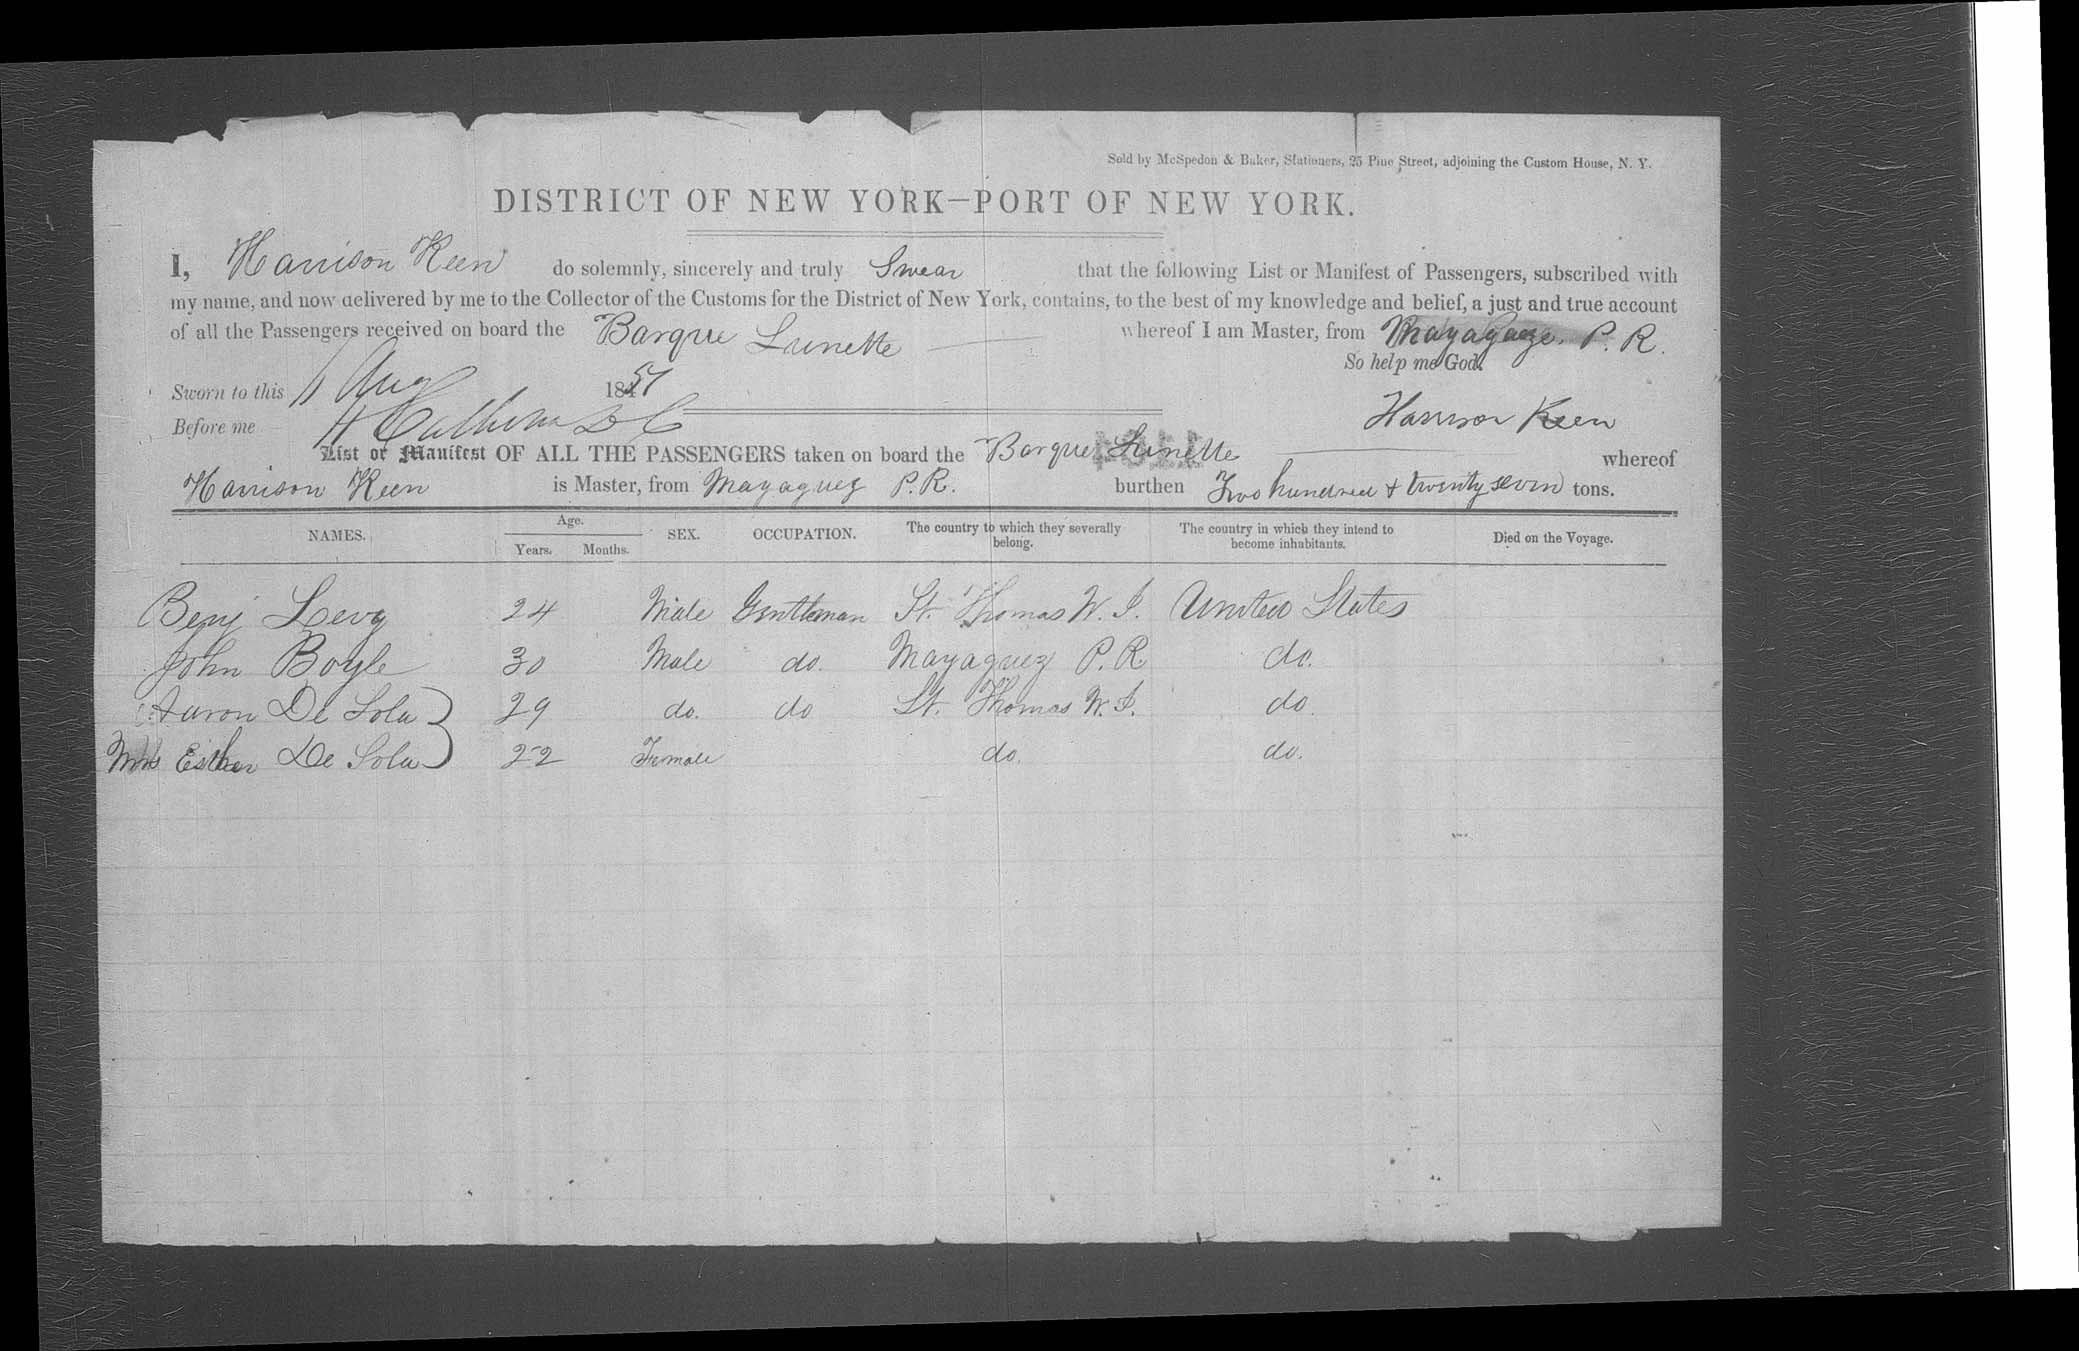 Sold by McSpedon & Baker, Stationers, 25 Pine Street, adjoining the Custom House, N. Y.
DISTRICT OF NEW YORK—PORT OF NEW YORK.
I, Harrison Keen do solemnly, sincerely and truly Swear that the following List or Manifest of Passengers, subscribed with
my name, and now delivered by me to the Collector of the Customs for the District of New York, contains, to the best of my knowledge and belief, a just and true account
of all the Passengers received on board the Barque Lunette whereof I am Master, from Mayaguez. P. R.
So help me God.
Sworn to this Aug 1851
Before me
Harrison Keen
List or Manifest OF ALL THE PASSENGERS taken on board the Barque Lunette whereof
Harrison Keen is Master, from Mayaguez P. R. burthen Two hundred & twenty seven tons.
NAMES. Age. Years. Months. SEX. OCCUPATION. The country to which they severally belong. The country in which they intend to become inhabitants. Died on the Voyage.
Benj Levy 24 Male Gentleman St. Thomas W. I. United States
John Boyle 30 Male do. Mayaguez P. R. do.
Aaron De Sola 29 do. do St. Thomas W. I. do
Mrs Esther De Sola 22 Female do. do.